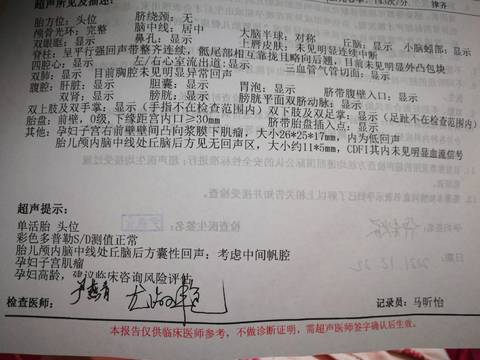 超声所见及描述:
胎方位: 头位 脐绕颈: 无
颅骨光环: 完整 脑中线: 居中 大脑半球: 对称 丘脑: 显示 小脑蚓部: 显示
双眼眶: 显示 鼻孔: 显示 上唇皮肤: 未见明显连续中断
脊柱: 呈平行强回声带整齐连续, 骶尾部相互靠拢且略向后翘, 目前未见明显外凸包块
四腔心: 显示 左/右心室流出道: 显示 三血管气管切面: 显示
双肺: 显示 目前胸腔未见明显异常回声
腹腔: 肝脏: 显示 胆囊: 显示 胃泡: 显示 脐带腹壁入口: 显示
双肾: 显示 膀胱: 显示 膀胱平面双脐动脉: 显示
双上肢及双手掌: 显示 (手指不在检查范围内) 双下肢及双足掌: 显示 (足趾不在检查范围内)
胎盘: 前壁, 0级, 下缘距宫内口≥30mm 脐带胎盘插入点: 显示
其他: 孕妇子宫右前壁壁间凸向浆膜下肌瘤, 大小26*25*17mm, 内为低回声
胎儿颅内脑中线处丘脑后方见无回声区, 大小约11*5mm, CDFI其内未见明显血流信号
超声提示:
单活胎 头位
彩色多普勒S/D测值正常
胎儿颅内脑中线处丘脑后方囊性回声: 考虑中间帆腔
孕妇子宫肌瘤
孕妇高龄, 建议临床咨询风险评估
检查医师: 记录员: 马昕怡
本报告仅供临床医师参考, 不做诊断证明, 需超声医师签字确认后生效。